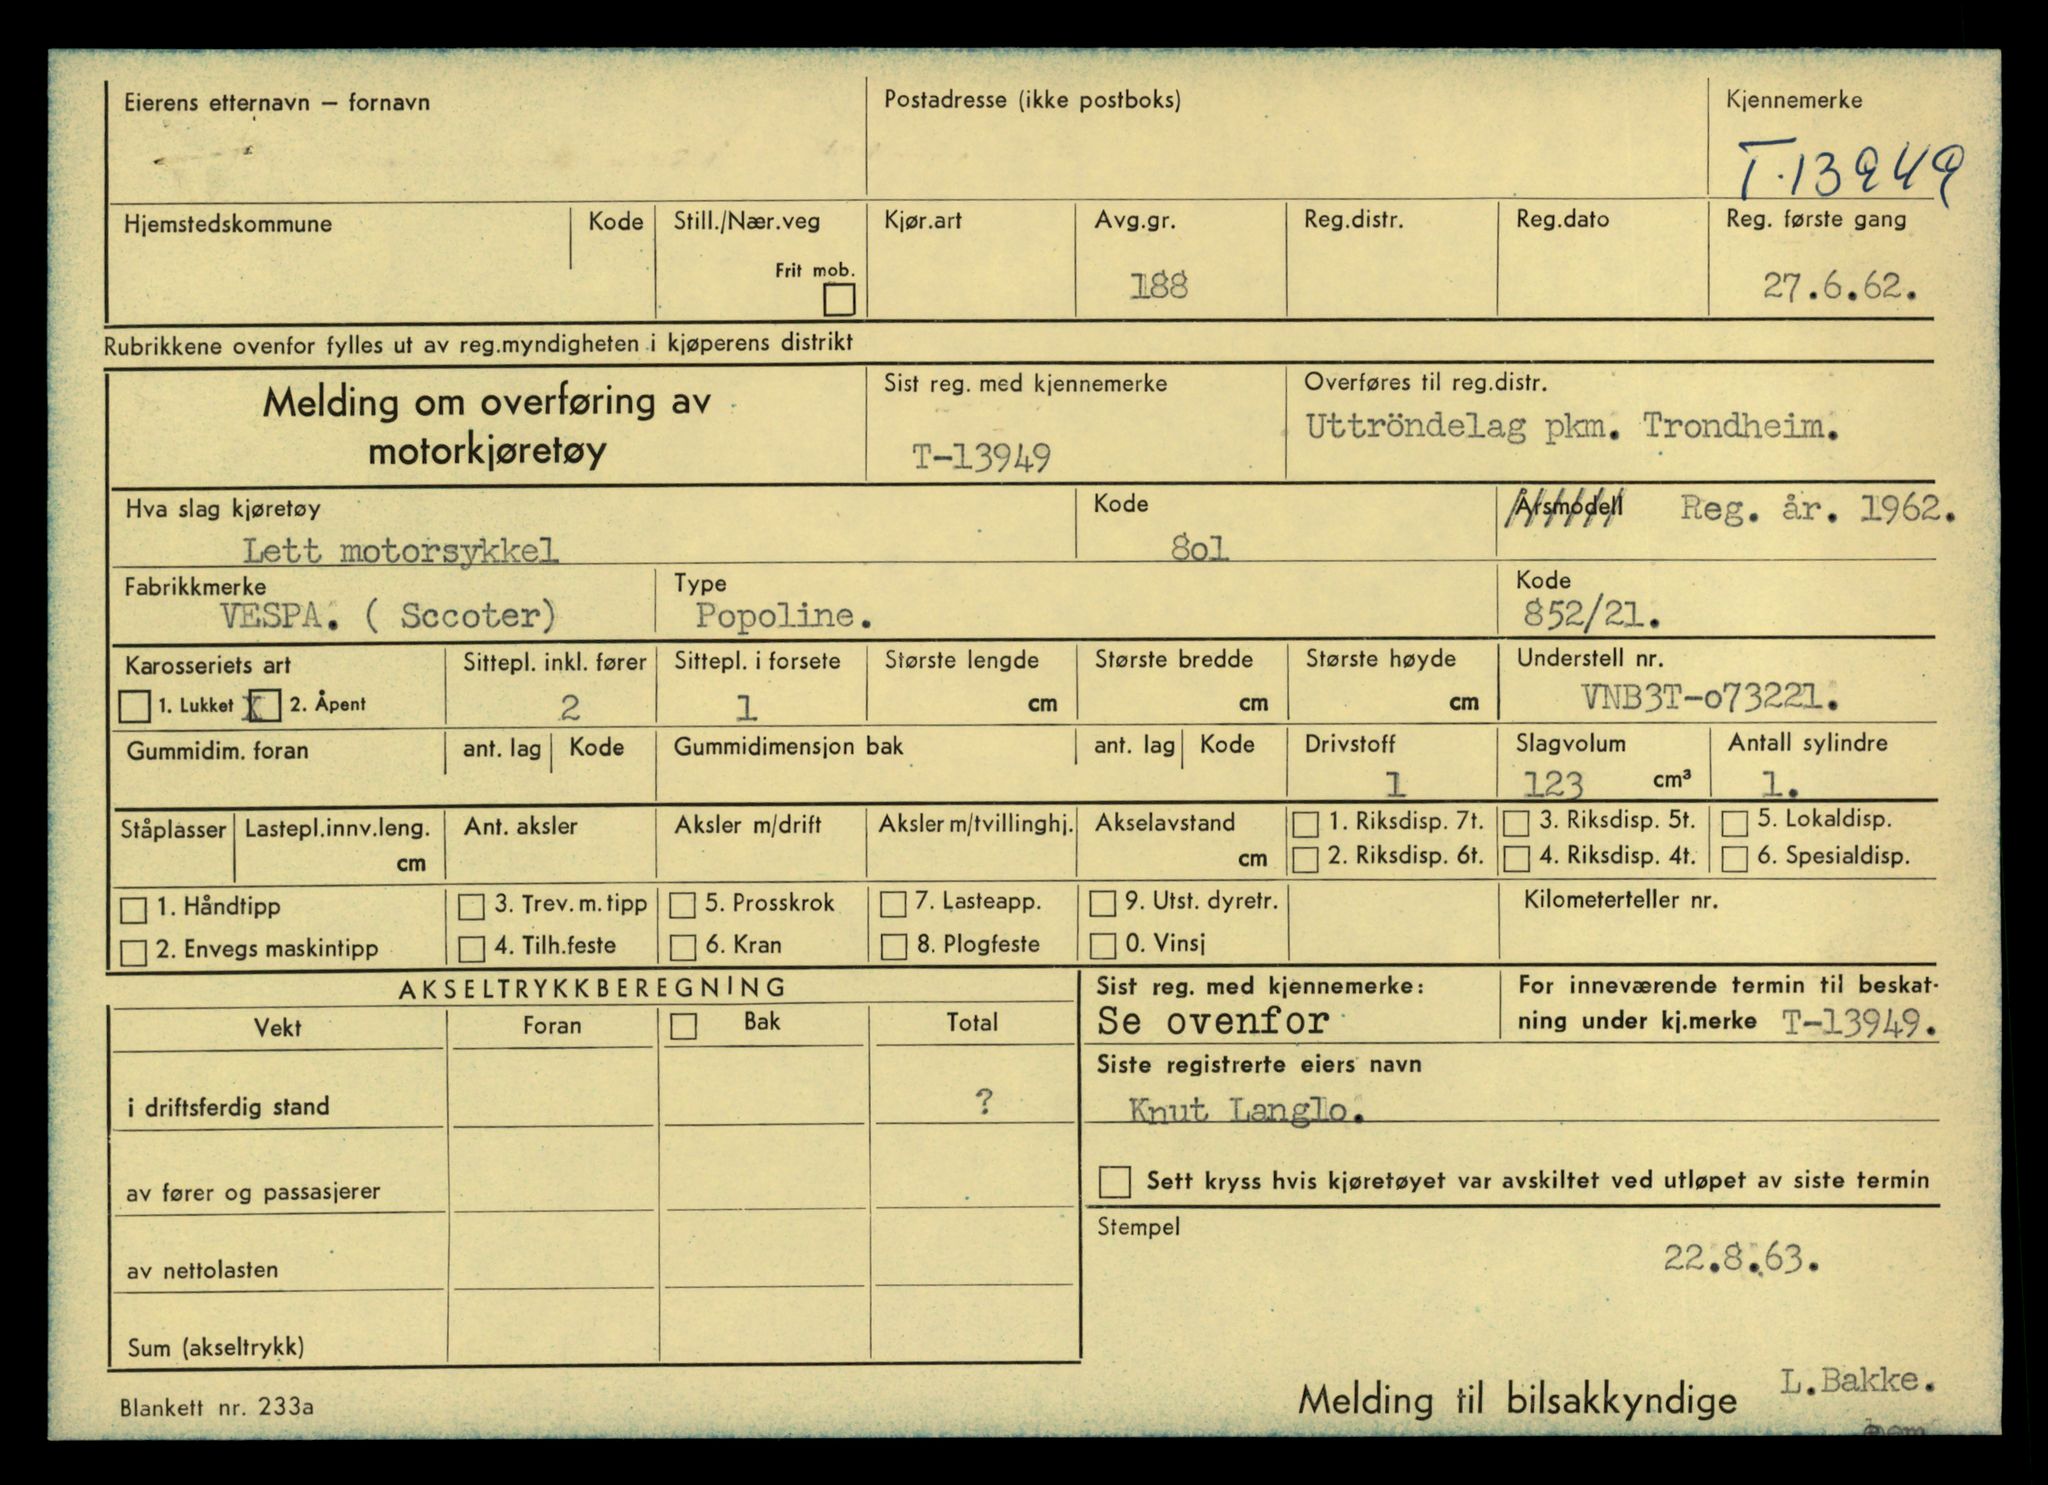 Eierens etternavn – fornavn
Postadresse (ikke postboks)
Kjennemerke
T-13949
Hjemstedskommune
Kode
Still./Nær.veg
Frit mob.
Kjør.art
Avg.gr.
188
Reg.distr.
Reg.dato
Reg. første gang
27.6.62.
Rubrikkene ovenfor fylles ut av reg.myndigheten i kjøperens distrikt
Melding om overføring av
motorkjøretøy
Sist reg. med kjennemerke
T-13949
Overføres til reg.distr.
Uttröndelag pkm. Trondheim.
Hva slag kjøretøy
Lett motorsykkel
Kode
8o1
Årsmodell Reg. år. 1962.
Fabrikkmerke
VESPA. ( Sccoter)
Type
Popoline.
Kode
852/21.
Karosseriets art
1. Lukket X 2. Åpent
Sittepl. inkl. fører
2
Sittepl. i forsete
1
Største lengde
cm
Største bredde
cm
Største høyde
cm
Understell nr.
VNB3T-o73221.
Gummidim. foran
ant. lag
Kode
Gummidimensjon bak
ant. lag
Kode
Drivstoff
1
Slagvolum
123 cm³
Antall sylindre
1.
Ståplasser
Lastepl.innv.leng.
cm
Ant. aksler
Aksler m/drift
Aksler m/tvillinghj.
Akselavstand
cm
1. Riksdisp. 7t.
2. Riksdisp. 6t.
3. Riksdisp. 5t.
4. Riksdisp. 4t.
5. Lokaldisp.
6. Spesialdisp.
1. Håndtipp
2. Envegs maskintipp
3. Trev. m. tipp
4. Tilh.feste
5. Prosskrok
6. Kran
7. Lasteapp.
8. Plogfeste
9. Utst. dyretr.
0. Vinsj
Kilometerteller nr.
AKSELTRYKKBEREGNING
Vekt
Foran
Bak
Total
i driftsferdig stand
?
av fører og passasjerer
av nettolasten
Sum (akseltrykk)
Sist reg. med kjennemerke:
Se ovenfor
For inneværende termin til beskat-
ning under kj.merke T-13949.
Siste registrerte eiers navn
Knut Langlo.
Sett kryss hvis kjøretøyet var avskiltet ved utløpet av siste termin
Stempel
22.8.63.
Blankett nr. 233a
Melding til bilsakkyndige
L.Bakke.